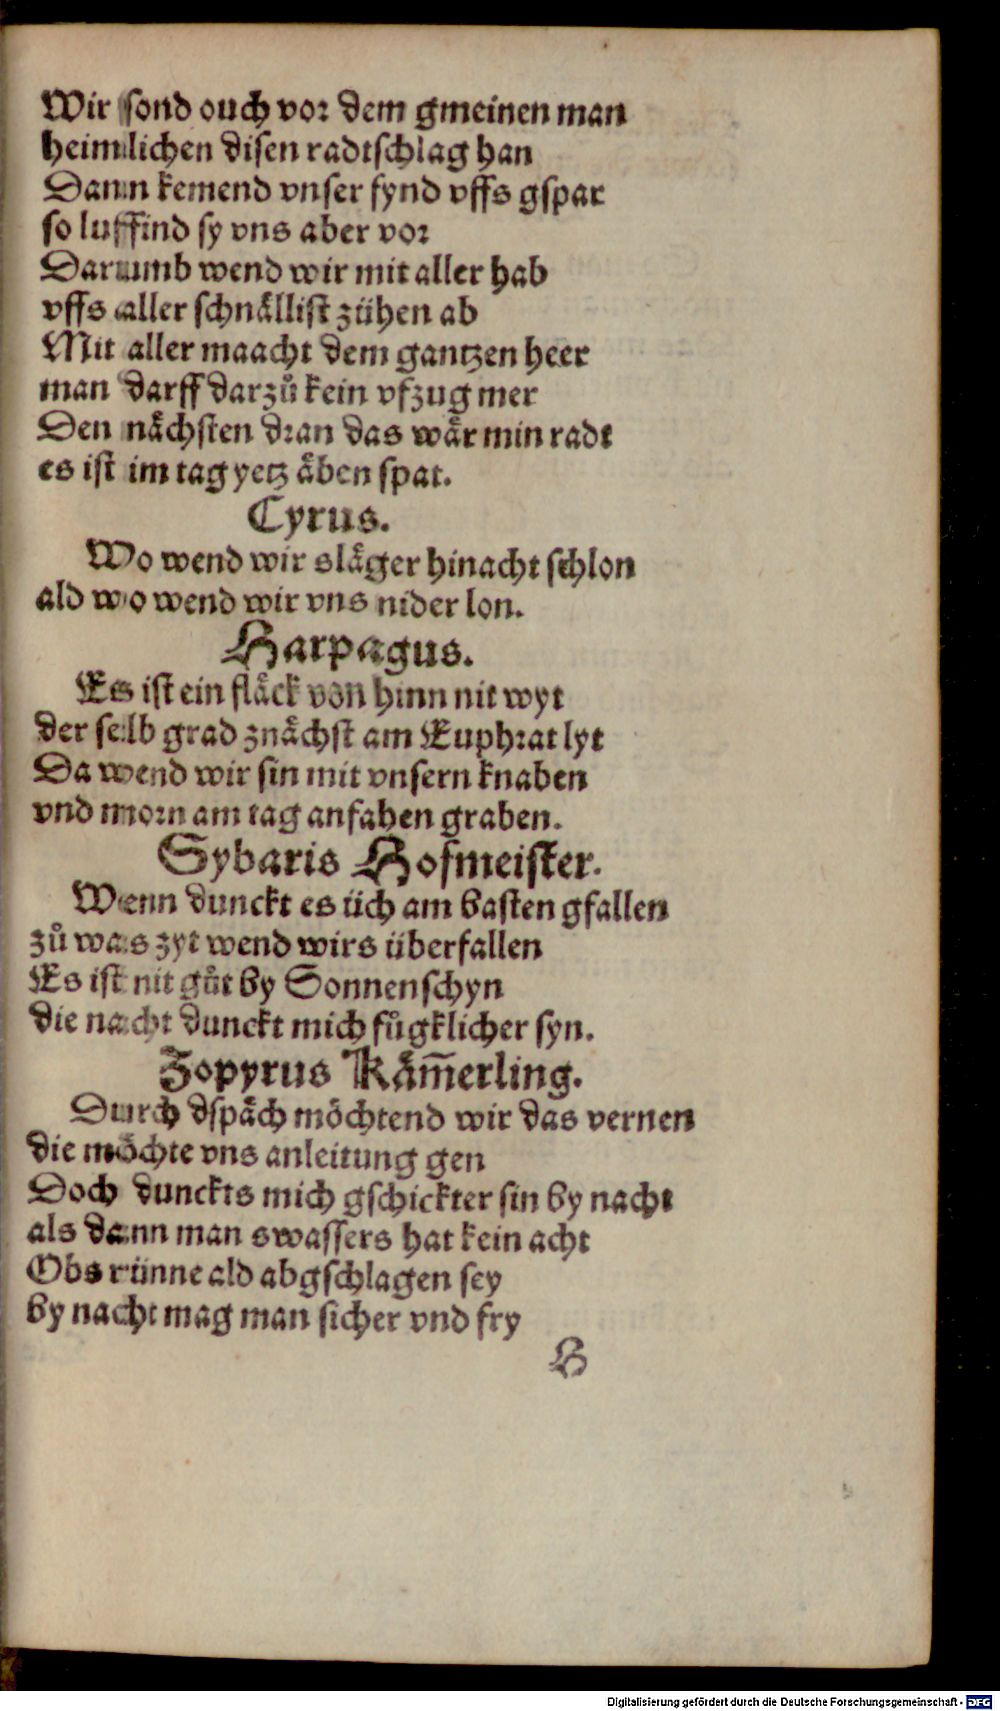 Wir sond ouch vor dem gmeinen man
heimlichen disen radtschlag han
Dann kemend vnser fynd vffs gspar
so luffind sy vns aber vor
Darumb wend wir mit aller hab
vffs aller schnällist zühen ab
Mit aller maacht dem gantzen heer
man darff darzů kein vfzug mer
Den nächsten dran das wär min radt
es ist im tag yetz äben spat.
Cyrus.
Wo wend wir släger hinacht schlon
ald wo wend wir vns nider lon.
Harpagus.
Es ist ein fläck von hinn nit wyt
der selb grad znächst am Euphrat lyt
Da wend wir sin mit vnsern knaben
vnd morn am tag anfahen graben.
Sybaris Hofmeister.
Wenn dunckt es üch am basten gfallen
zů was zyt wend wirs überfallen
Es ist nit gůt by Sonnenschyn
die nacht dunckt mich fůgklicher syn.
Zopyrus Käm̄erling.
Durch dspäch möchtend wir das vernen
die möchte vns anleitung gen
Doch dunckts mich gschickter sin by nacht
als dann man swassers hat kein acht
Obs rünne ald abgschlagen sey
by nacht mag man sicher vnd fry
H
Digitalisierung gefördert durch die Deutsche Forschungsgemeinschaft - DFG